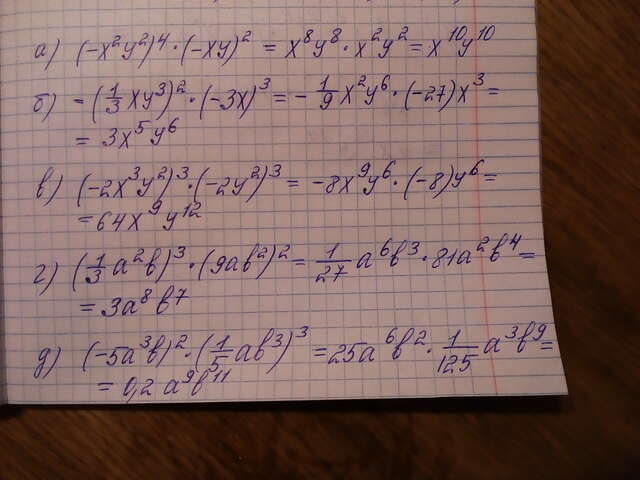 а) (-x²y²)⁴ · (-xy)² = x⁸y⁸ · x²y² = x¹⁰y¹⁰
б) -(1/3 xy³)² · (-3x)³ = -1/9 x²y⁶ · (-27)x³ =
= 3x⁵y⁶
в) (-2x³y²)³ · (-2y²)³ = -8x⁹y⁶ · (-8)y⁶ =
= 64x⁹y¹²
г) (1/3 a²b)³ · (9ab²)² = 1/27 a⁶b³ · 81a²b⁴ =
= 3a⁸b⁷
д) (-5a³b)² · (1/5 ab³)³ = 25a⁶b² · 1/125 a³b⁹ =
= 0,2 a⁹b¹¹